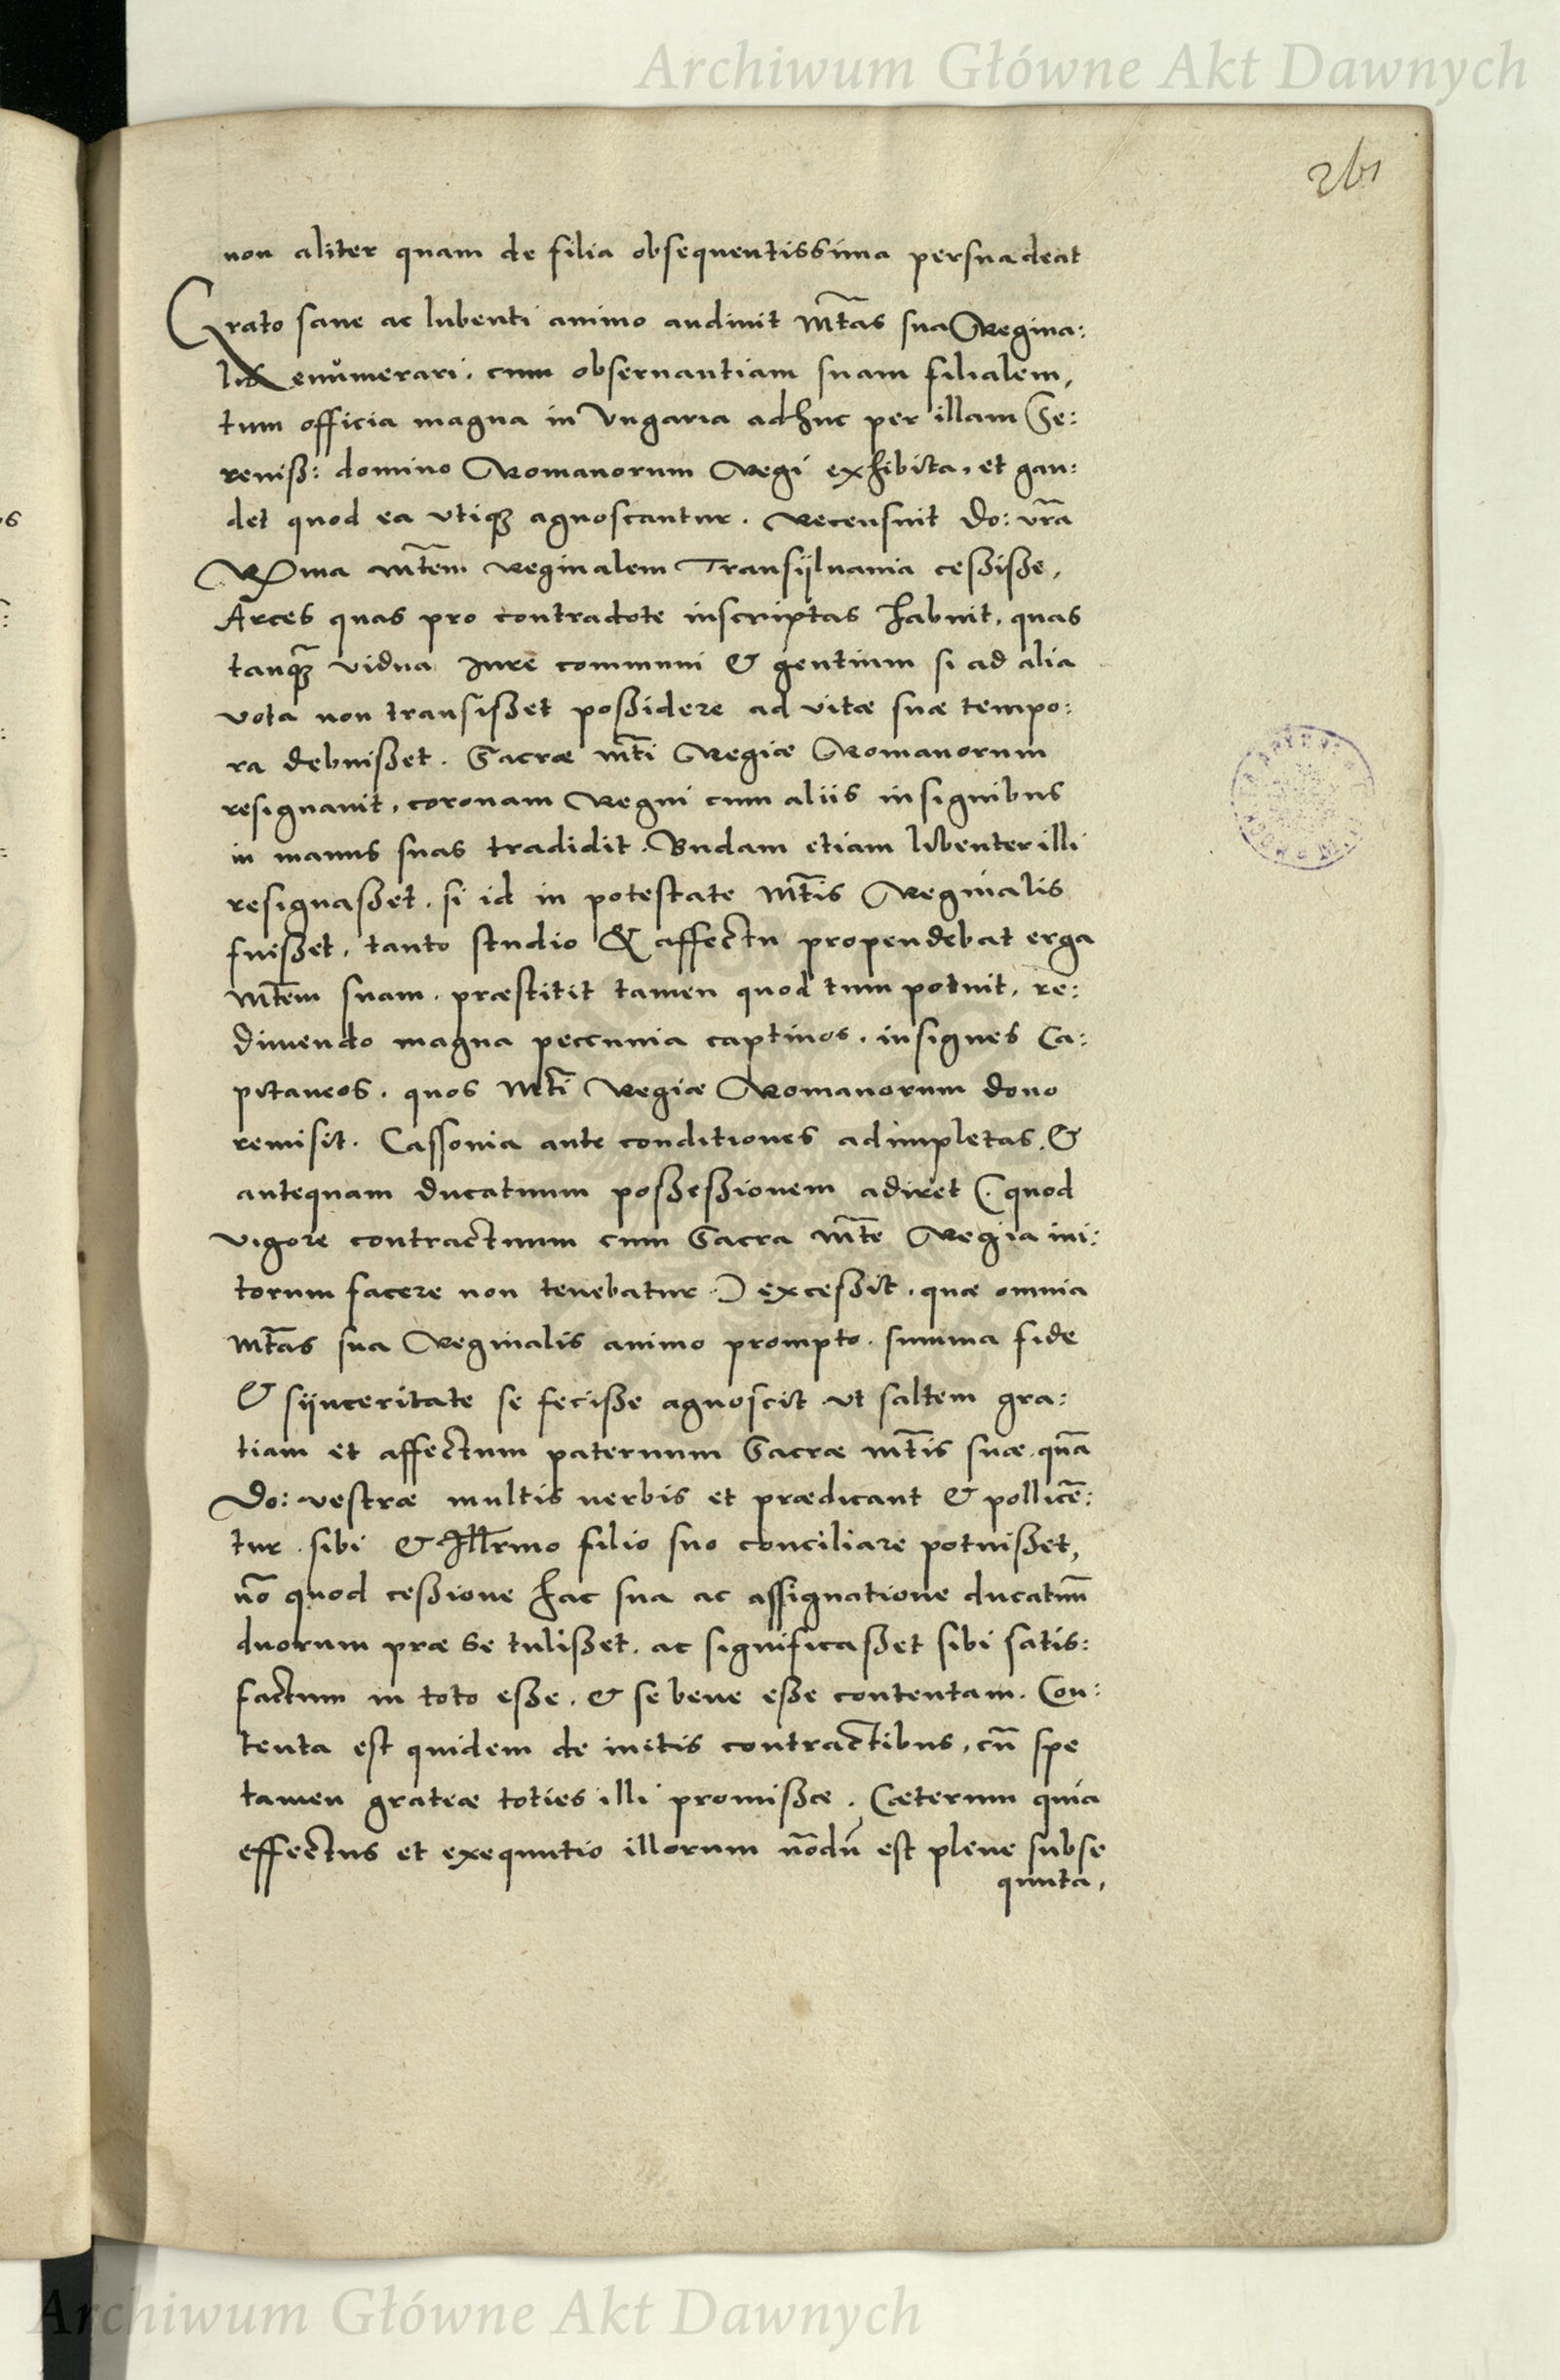 Archiwum Główne Akt Dawnych
261
non aliter quam de filia obsequentissima persuadeat
Grato sane ac lubenti animo audiuit Mt̃as sua Regina:
lis enŭmerari. cum obseruantiam suam filialem,
tum officia magna in Vngaria adhuc per illam Se:
reniß: domino Romanorum Regi exhibita, et gau:
det quod ea vtiqꝫ agnoscantur. Recensuit Do: vr̃a
Rma mt̃em Reginalem Transijluania ceßiße,
Arces quas pro contradote inscriptas habuit, quas
tanqꝫ̃ vidua Iure communi & gentium si ad alia
vota non transißet poßidere ad vitæ suæ tempo:
ra debuißet. Sacræ mt̃i Regiæ Romanorum
resignauit, coronam Regni cum aliis insignibus
in manus suas tradidit. Budam etiam libenter illi
resignaßet. si id in potestate Mt̃is Reginalis
fuißet, tanto studio & affectu propendebat erga
Mt̃em suam. præstitit tamen quod tum potuit, re:
dimendo magna peccunia captiuos. insignes Ca:
pitaneos. quos Mt̃i Regiæ Romanorum dono
remisit. Cassouia ante conditiones adimpletas. &
antequam ducatuum poßeßionem adiret (. quod
vigore contractuum cum Sacra mt̃e Regia ini:
torum facere non tenebatur .) exceßit. quæ omnia
Mt̃as sua Reginalis animo prompto. summa fide
& sijnceritate se feciße agnoscit vt saltem gra:
tiam et affectum paternum Sacræ Mt̃is suæ. quã
Do: vestræ multis uerbis et prædicant & pollicẽ:
tur. sibi & Ill̃rmo filio suo conciliare potuißet,
nõ quod ceßione hac sua ac assignatione ducatuũ
duorum præ se tulißet. ac significaßet sibi satis:
factum in toto eße. & se bene eße contentam. Con:
tenta est quidem de initis contractibus, cũ spe
tamen gratiæ toties illi promißæ. Cæterum quia
effectus et exequutio illorum nõdũ est plene subse
quuta,
Archiwum Główne Akt Dawnych